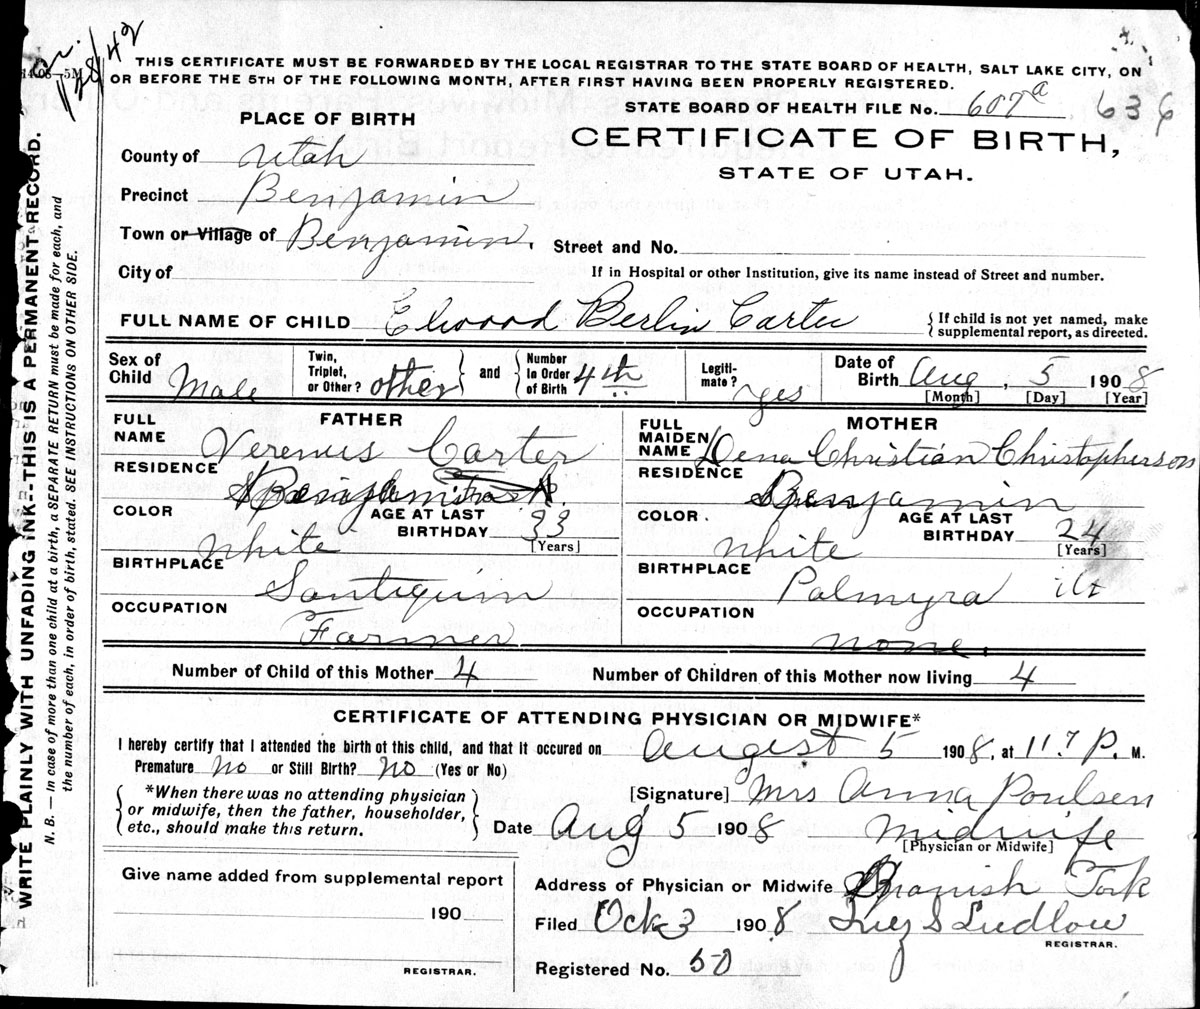 28/42
14 08—5M
THIS CERTIFICATE MUST BE FORWARDED BY THE LOCAL REGISTRAR TO THE STATE BOARD OF HEALTH, SALT LAKE CITY, ON
OR BEFORE THE 5TH OF THE FOLLOWING MONTH, AFTER FIRST HAVING BEEN PROPERLY REGISTERED.
STATE BOARD OF HEALTH FILE No. 607a 636
PLACE OF BIRTH
CERTIFICATE OF BIRTH,
STATE OF UTAH.
County of Utah
Precinct Benjamin
Town or Village of Benjamin. Street and No.
City of If in Hospital or other Institution, give its name instead of Street and number.
FULL NAME OF CHILD Elwood Berlin Carter { If child is not yet named, make
supplemental report, as directed.
Sex of Child Male Twin, Triplet, or Other? other and Number In Order of Birth 4th Legiti-mate? yes Date of Birth Aug, 5 1908
[Month] [Day] [Year]
FATHER
FULL NAME Verenus Carter
RESIDENCE Benjamin
COLOR White AGE AT LAST BIRTHDAY 33
[Years]
BIRTHPLACE Santiquin
OCCUPATION Farmer
MOTHER
FULL MAIDEN NAME Dena Christian Christopherson
RESIDENCE Benjamin
COLOR White AGE AT LAST BIRTHDAY 24
[Years]
BIRTHPLACE Palmyra Ut
OCCUPATION none.
Number of Child of this Mother 4 Number of Children of this Mother now living 4
CERTIFICATE OF ATTENDING PHYSICIAN OR MIDWIFE*
I hereby certify that I attended the birth of this child, and that it occured on August 5 1908, at 11.7 P. M.
Premature no or Still Birth? No (Yes or No)
*When there was no attending physician
or midwife, then the father, householder,
etc., should make this return.
[Signature] Mrs Anna Poulsen
Date Aug 5 1908 Midwife
[Physician or Midwife]
Give name added from supplemental report
190
REGISTRAR.
Address of Physician or Midwife Spanish Fork
Filed Oct 3 1908 Ludlow
REGISTRAR.
Registered No. 50
WRITE PLAINLY WITH UNFADING INK--THIS IS A PERMANENT RECORD.
N. B. — In case of more than one child at a birth, a SEPARATE RETURN must be made for each, and
the number of each, in order of birth, stated. SEE INSTRUCTIONS ON OTHER SIDE.